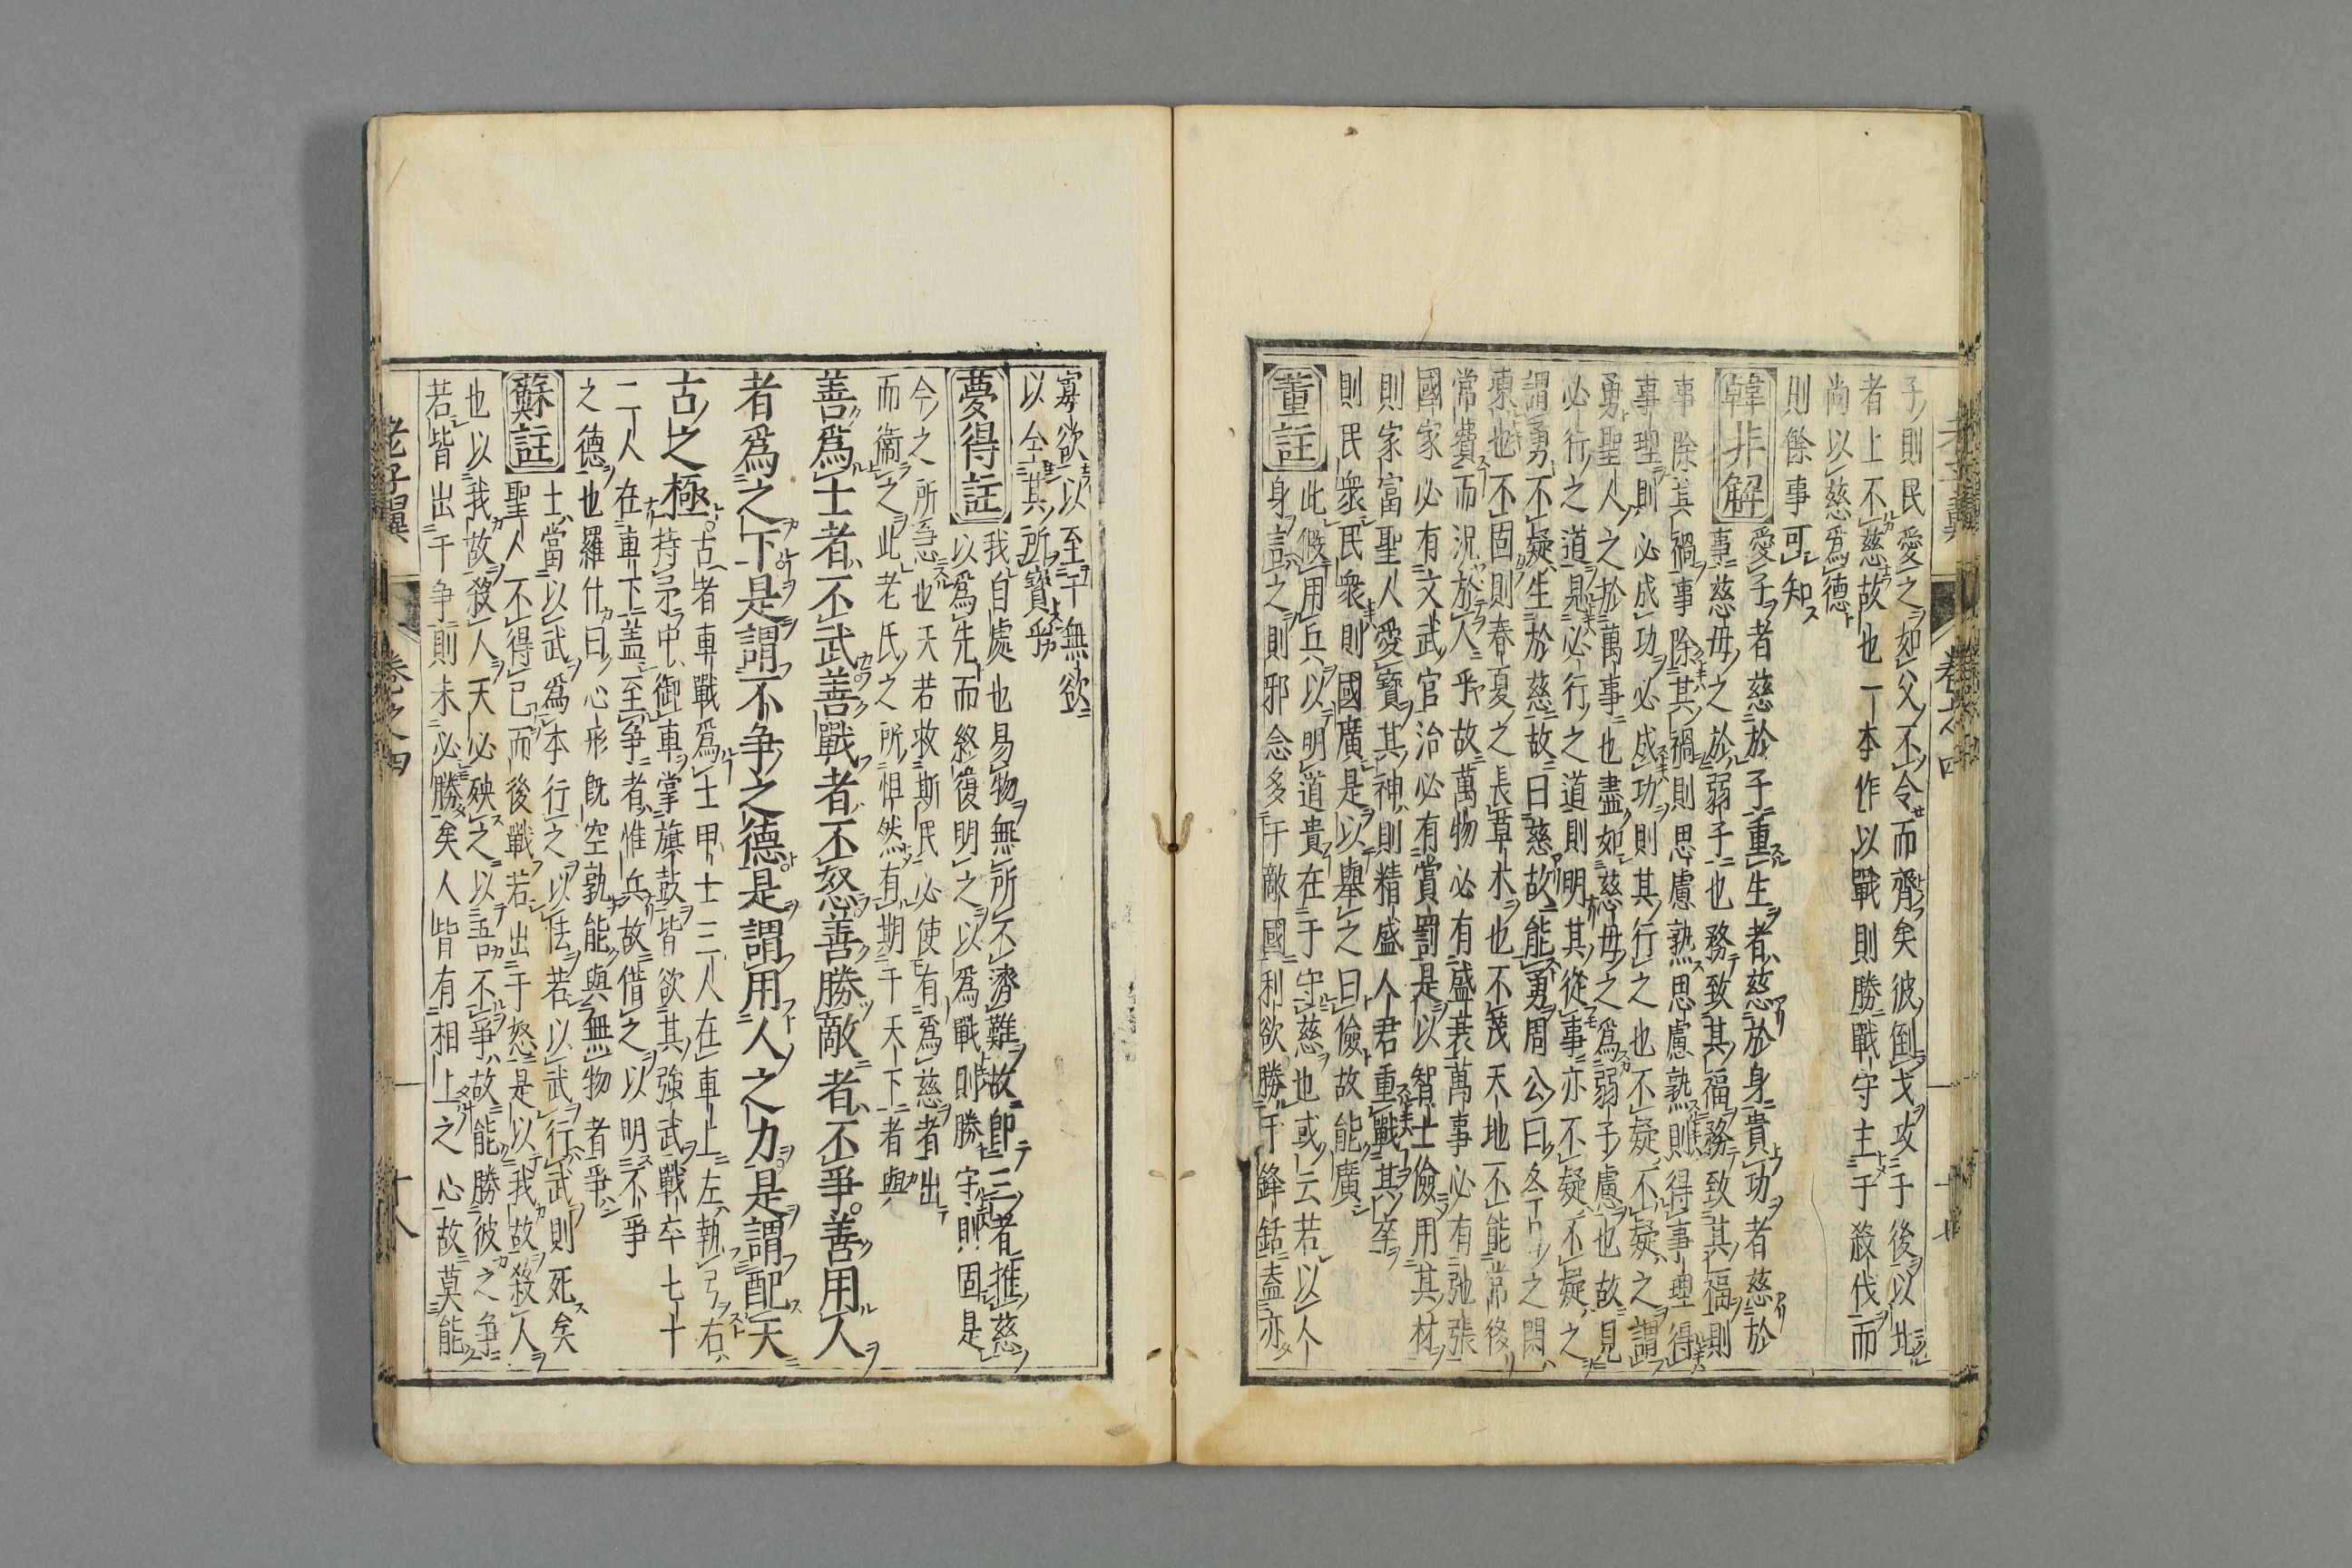 子則民愛之如父不令而齊矣彼倒戈攻于後以北
者上不慈故也一本作以戰則勝戰守主于殺伐而
尚以慈爲德
則餘事可知
韓非解
愛子者慈於子重生者慈於身貴功者慈於
事慈母之於弱子也務致其福務致其福則
事除其禍事除其禍則思慮熟思慮熟則得事理得
事理則必成功必成功則其行之也不疑不疑之謂
勇聖人之於萬事也盡如慈母之爲弱子慮也故見
必行之道見必行之道則明其從事亦不疑不疑之
謂勇不疑生於慈故曰慈故能勇周公曰冬日之閉
凍也不固則春夏之長草木也不茂天地不能常侈
常費而況於人乎故萬物必有盛衰萬事必有弛張
國家必有文武官治必有賞罰是以智士儉用其材
則家富聖人愛寶其神則精盛人君重戰其卒
則民衆民衆則國廣是以舉之曰儉故能廣
董註
此假用兵以明道貴在于守慈也或云若以人
身言之則邪念多于敵國利欲勝于鋒銛蓋亦
老子翼 卷之四 十七
寡欲以至于無欲
以全其所寶乎
夢得註
我自處也易物無所不濟難故卽三者推慈
以爲先而終復明之以爲戰則勝守則固是
今之所急也天若救斯民必使有爲慈者出
而衞之此老氏之所怛然有期于天下者與
善爲士者不武善戰者不怒善勝敵者不爭善用人
者爲之下是謂不爭之德是謂用人之力是謂配天
古之極
古者車戰爲士甲士三人在車上左執弓右
持矛中御車掌旗鼓皆欲其強武戰卒七十
二人在車下蓋至爭者惟兵故借之以明不爭
之德也羅什曰心形旣空孰能與無物者爭
蘇註
士當以武爲本行之以怯若以武行武則死矣
聖人不得已而後戰若出于怒是以我故殺人
也以我故殺人天必殃之以吾不爭故能勝彼之爭
若皆出于爭則未必勝矣人皆有相上之心故莫能
老子翼 卷之四 十八